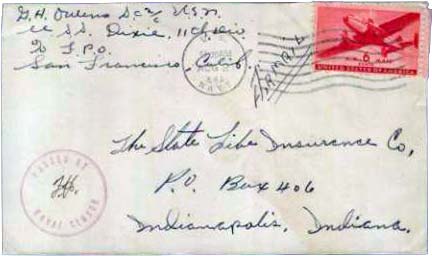 G.H. Owens S2/c U.S.N.
U.S.S. Dixie, 11th Div
% F.P.O.
San Francisco, Calif
U.S. NAVY
Airmail
6¢
AIR MAIL
UNITED STATES OF AMERICA
The State Life Insurance Co,
P.O. Box 406
Indianapolis, Indiana.
PASSED BY
NAVAL CENSOR